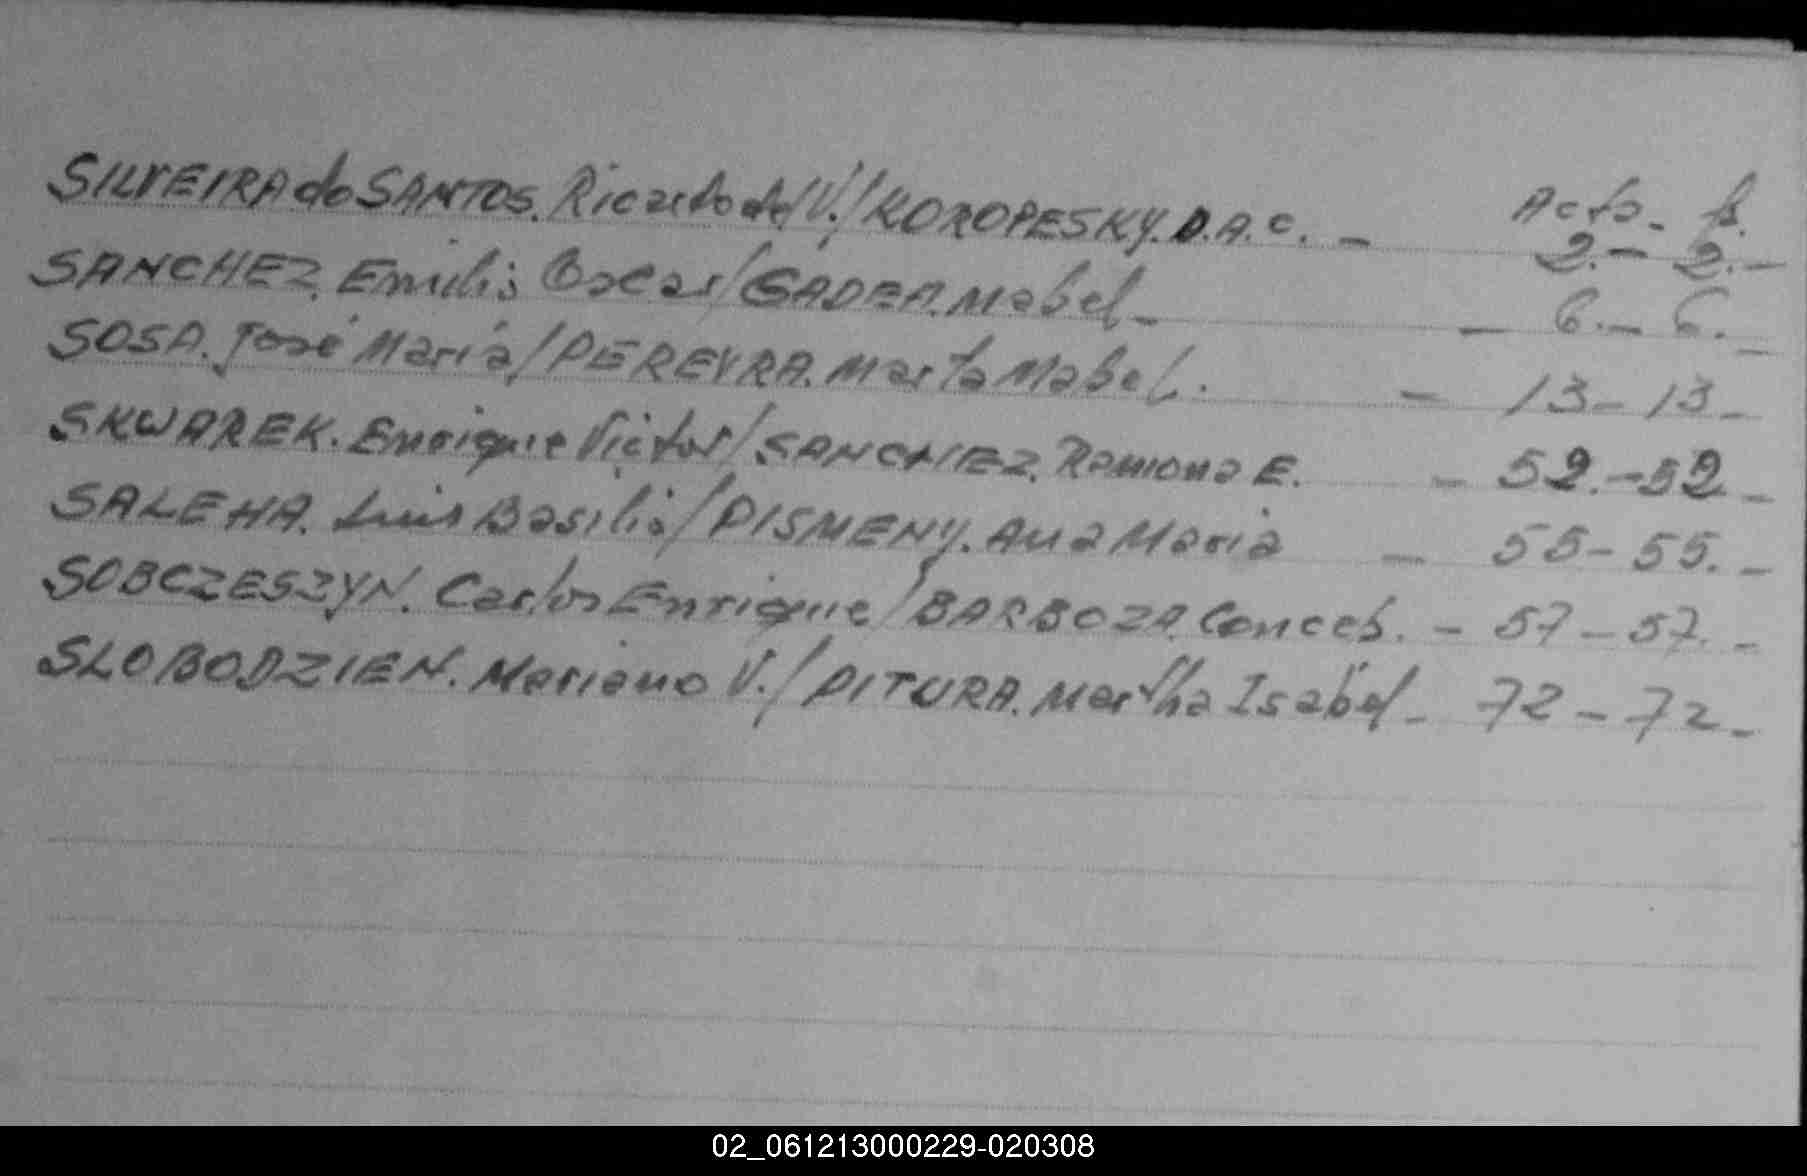 Acta. fs.
SILVEIRA do SANTOS. Ricardo del V./KOROPESKY. D.A.C. - 2.- 2.-
SANCHEZ. Emilio Oscar/GADEA. Mabel - - 6.- 6.-
SOSA. José María/PEREYRA. Marta Mabel. - 13-13-
SKWAREK. Enrique Victor/SANCHEZ. Ramona E. - 52.-52-
SALEHA. Luis Basilio/PISMENY. Ana Maria - 55-55.-
SOBCZESZYN. Carlos Enrique/BARBOZA. - 57-57.-
SLOBODZIEN. Mariano V./PITURA. Martha Isabel - 72-72-
02_061213000229-020308